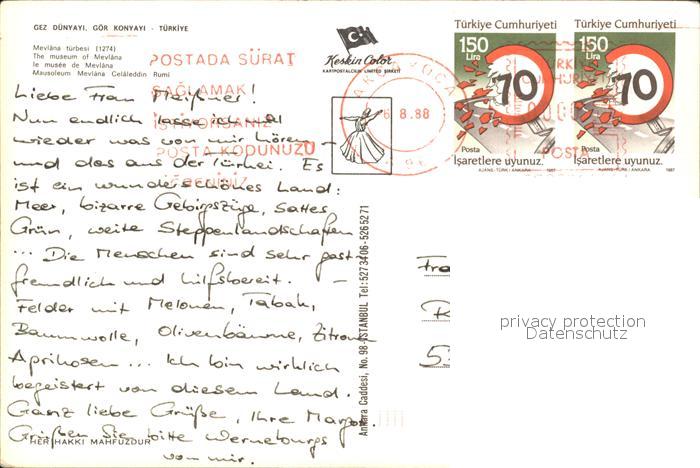 GEZ DÜNYAYI, GÖR KONYAYI - TÜRKİYE
Mevlâna türbesi (1274)
The museum of Mevlâna
le musée de Mevlâna
Mausoleum Mevlâna Celâleddin Rumi
POSTADA SÜRAT
SAĞLAMAK
İSTİYORSANIZ
POSTA KODUNUZU
Liebe Frau Meißner!
Nun endlich lasse ich mal
wieder was von mir hören –
und das aus der Türkei. Es
ist ein wunderschönes Land:
Meer, bizarre Gebirgszüge, sattes
Grün, weite Steppenlandschaften
... Die Menschen sind sehr gast-
freundlich und hilfsbereit. –
Felder mit Melonen, Tabak,
Baumwolle, Olivenbäume, Zitronen
Aprikosen ... Ich bin wirklich
begeistert von diesem Land.
Ganz liebe Grüße, Ihre Margot.
Grüßen Sie bitte Wernebourgs
von mir.
HER HAKKI MAHFUZDUR
Keskin Color
KARTPOSTALCILIK LIMITED ŞİRKETİ
Ankara Caddesi, No. 98 - İSTANBUL Tel: 5273406-5265271
6.8.88
Türkiye Cumhuriyeti
150
Lira
70
Posta
İşaretlere uyunuz.
AJANS-TÜRK / ANKARA 1987
Türkiye Cumhuriyeti
150
Lira
70
Posta
İşaretlere uyunuz.
AJANS-TÜRK / ANKARA 1987
POSTA
Fra
5
privacy protection
Datenschutz